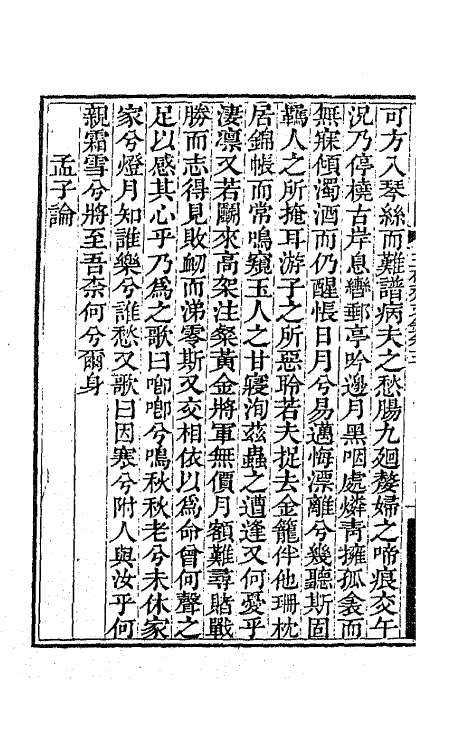 可方入琴絲而難譜病夫之愁腸九廻嫠婦之啼痕交午
況乃停橈古岸息轡郵亭吟邊月黑咽處燐靑擁孤衾而
無寐傾濁酒而仍醒悵日月兮易邁悔漂離兮幾聽斯固
羈人之所掩耳游子之所惡聆若夫捉去金籠伴他珊枕
居錦帳而常鳴窺玉人之甘寢洵茲蟲之遭逢又何憂乎
淒凛又若鬭來高架注粲黃金將軍無價月額難尋賭戰
勝而志得見敗衂而涕零斯又交相依以爲命曾何聲之
足以感其心乎乃爲之歌曰喞喞兮鳴秋秋老兮未休家
家兮燈月知誰樂兮誰愁又歌曰因寒兮附人與汝乎何
親霜雪兮將至吾柰何兮爾身
孟子論